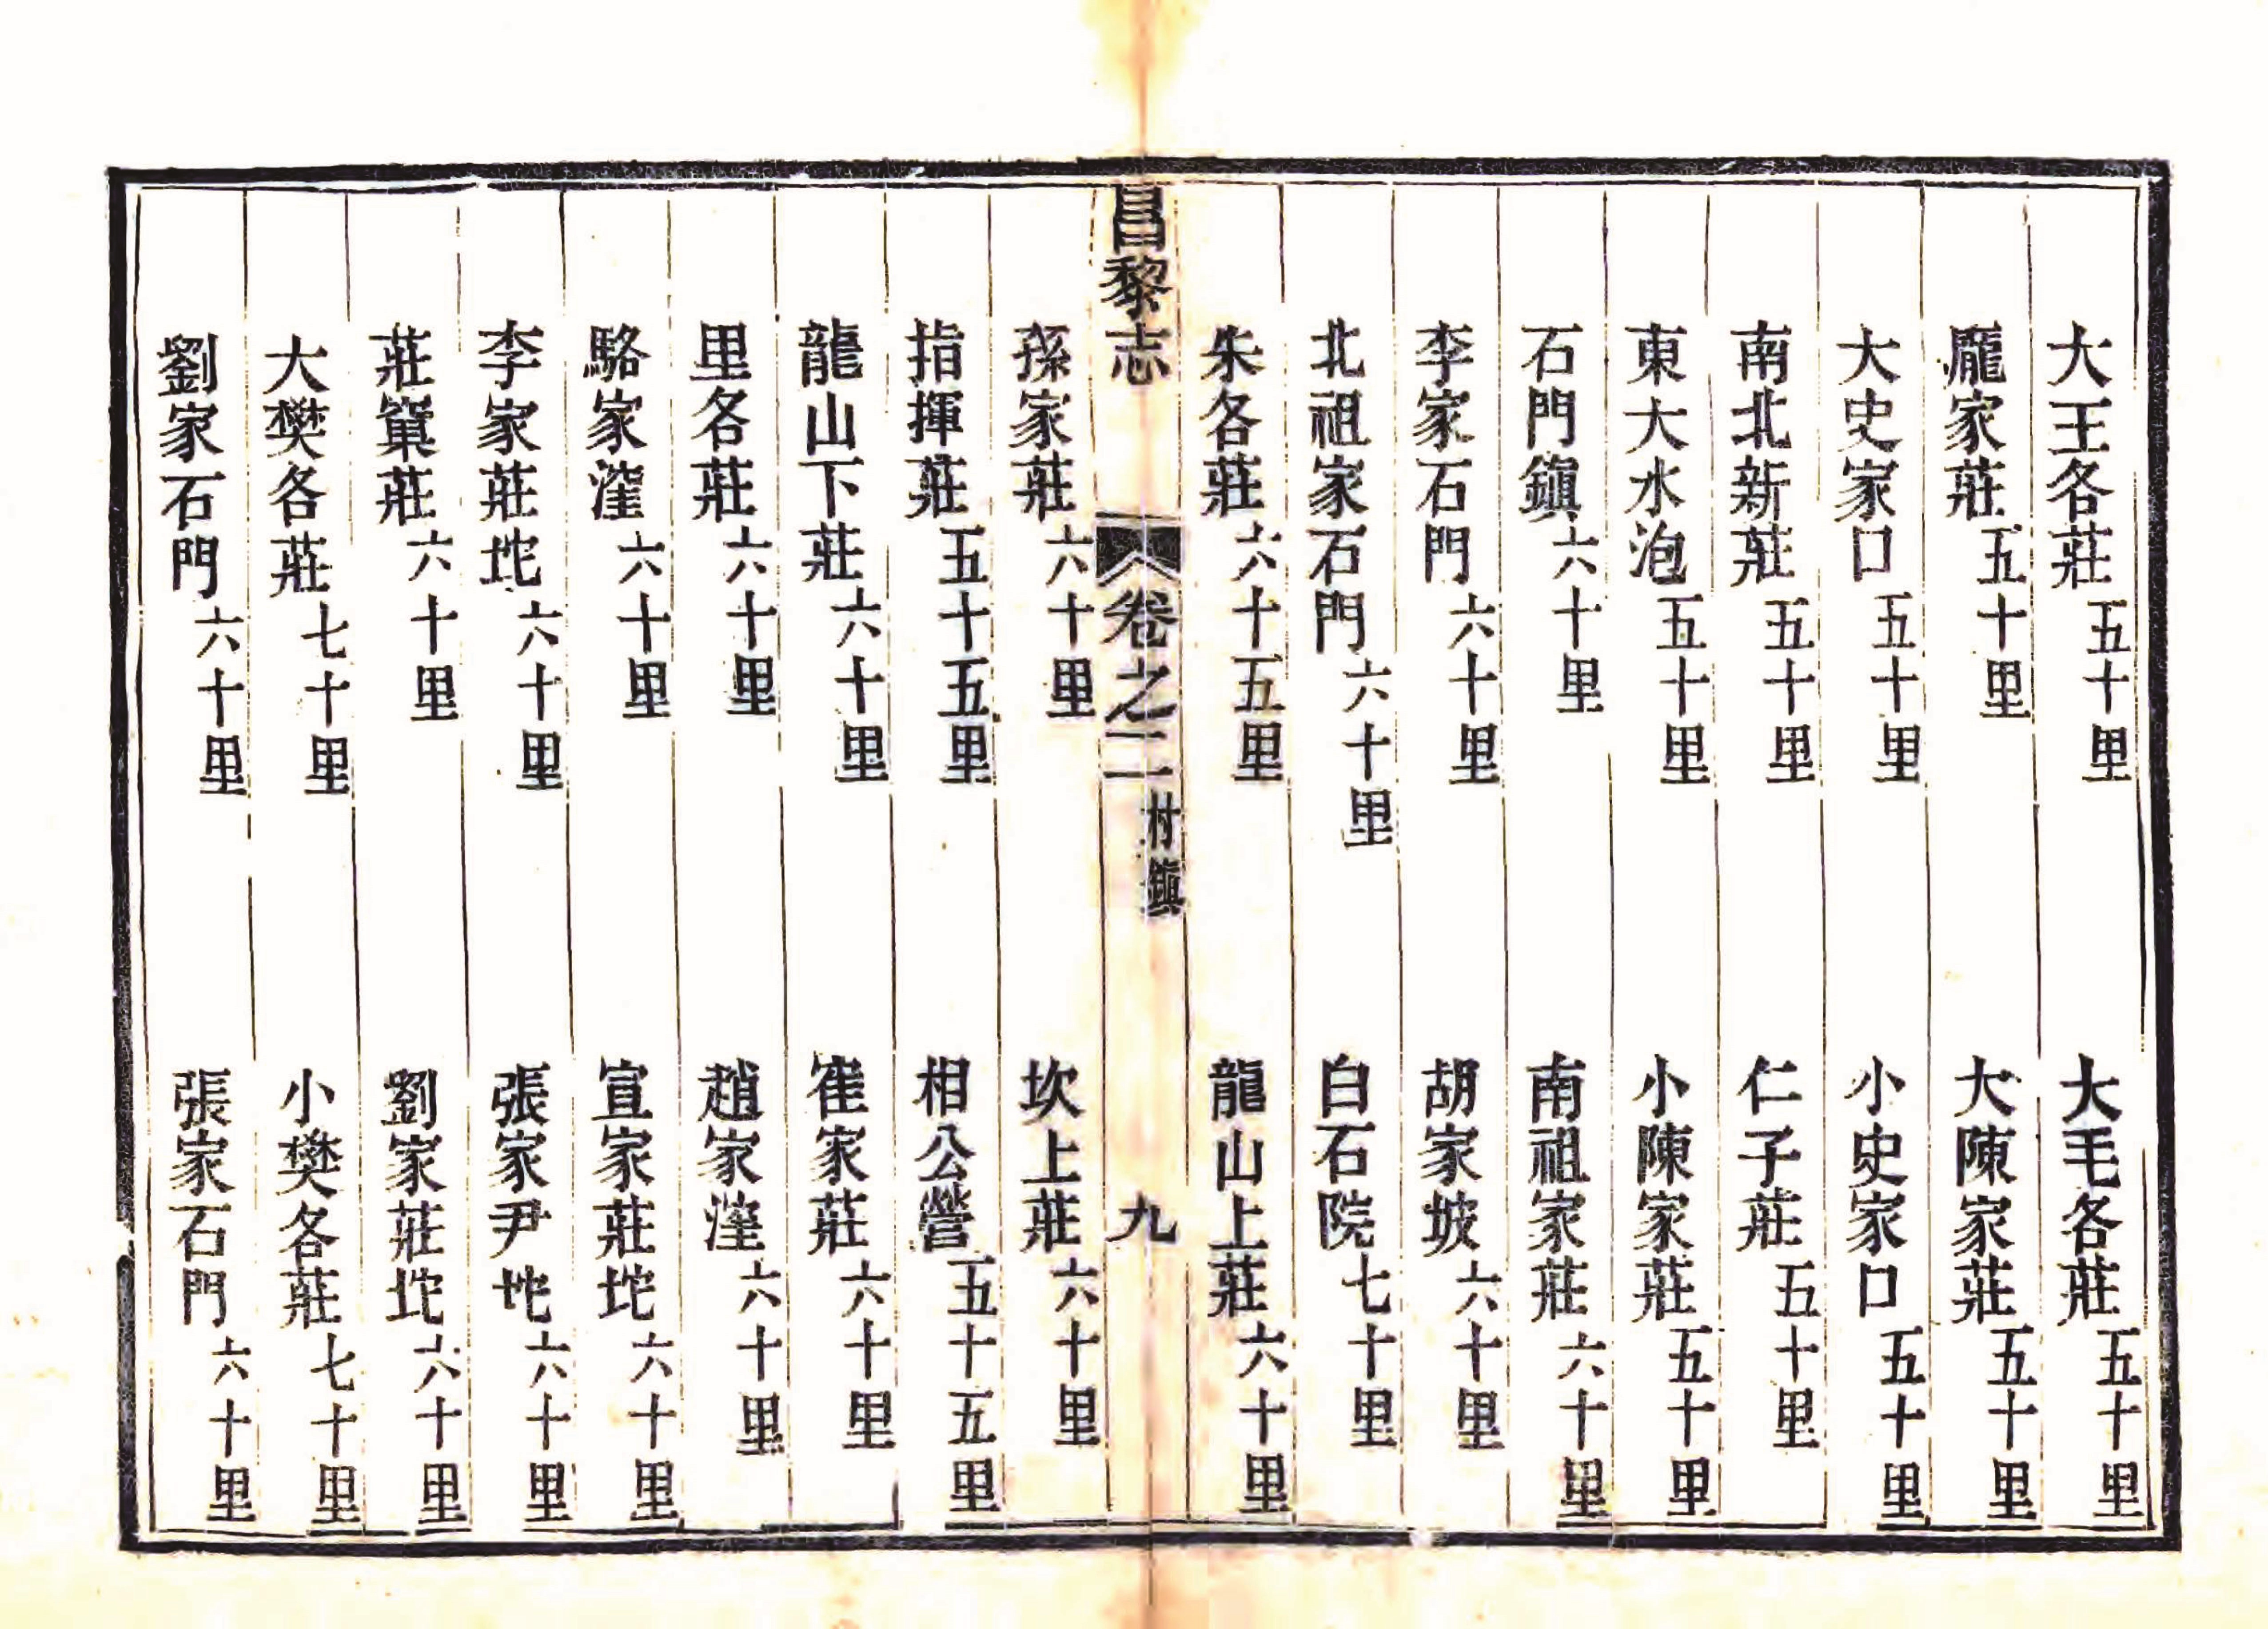 大王各莊五十里　大毛各莊五十里
龐家莊五十里　大陳家莊五十里
大史家口五十里　小史家口五十里
南北新莊五十里　仁子莊五十里
東大水泡五十里　小陳家莊五十里
石門鎮六十里　南祖家莊六十里
李家石門六十里　胡家坡六十里
北祖家石門六十里　白石院七十里
朱各莊六十五里　龍山上莊六十里
昌黎志　卷之二　村鎮　九
孫家莊六十里　坎上莊六十里
指揮莊五十五里　相公營五十五里
龍山下莊六十里　崔家莊六十里
里各莊六十里　趙家漥六十里
駱家漥六十里　宣家莊坨六十里
李家莊坨六十里　張家尹坨六十里
莊窠莊六十里　劉家莊坨六十里
大樊各莊七十里　小樊各莊七十里
劉家石門六十里　張家石門六十里